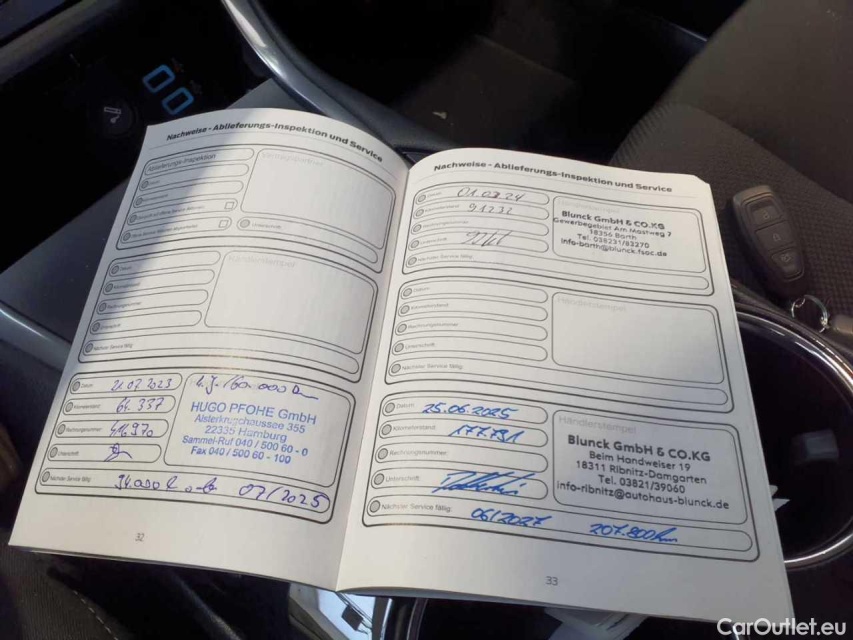 Nachweise - Ablieferungs-Inspektion und Service
Ablieferungs-Inspektion
Händlerstempel
Datum
Kilometerstand:
Rechnungsnummer:
Unterschrift:
Nächster Service fällig:
Händlerstempel
Datum: 21.07.2023
Kilometerstand: 64.337
Rechnungsnummer: 416970
Unterschrift:
HUGO PFOHE GmbH
Alsterkrugchaussee 355
22335 Hamburg
Sammel-Ruf 040 / 500 60 - 0
Fax 040 / 500 60 - 100
Nächster Service fällig: 07/2025
32
Nachweise - Ablieferungs-Inspektion und Service
Datum: 01.03.24
Kilometerstand: 91232
Unterschrift:
Nächster Service fällig:
Händlerstempel
Blunck GmbH & CO.KG
Gewerbegebiet Am Mastweg 7
18356 Barth
Tel. 038231/83270
info-barth@blunck.fsoc.de
Datum:
Kilometerstand:
Rechnungsnummer:
Unterschrift:
Nächster Service fällig:
Händlerstempel
Datum: 25.06.2025
Kilometerstand: 177.791
Rechnungsnummer:
Unterschrift:
Händlerstempel
Blunck GmbH & CO.KG
Beim Handweiser 19
18311 Ribnitz-Damgarten
Tel. 03821/39060
info-ribnitz@autohaus-blunck.de
Nächster Service fällig: 06/2027 207.800km
33
CarOutlet.eu